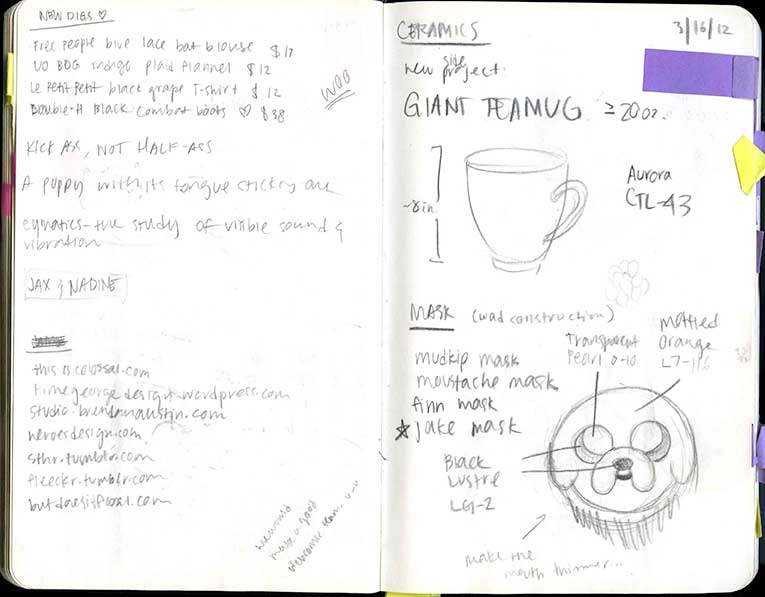 NEW DIGS ♡
Free People blue lace bat blouse $17
UO BDG indigo plaid flannel $12
Le Petit Petit black grape T-shirt $12
Double-H Black Combat boots ♡ $38
WOO
KICK ASS, NOT HALF-ASS
A puppy with its tongue sticking out
cymatics - the study of visible sound &
vibration
JAX & NADINE
this is colossal.com
timegeorgedesign.wordpress.com
studio.brendanaustin.com
heroesdesign.com
sthr.tumblr.com
fleeckr.tumblr.com
butdoesitfloat.com
make a good
CERAMICS
3/16/12
new side project:
GIANT TEAMUG ≥ 20 oz.
~8 in.
Aurora
CTL-43
MASK (wad construction)
mudkip mask
moustache mask
finn mask
☆ jake mask
Transparent
Pearl 0-10
Mottled
Orange
L7-116
Black
Lustre
LG-2
make the
mouth thinner...